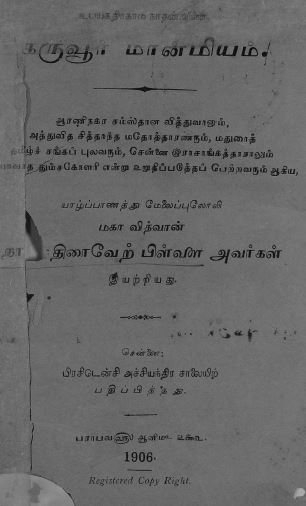 கருவூர் மான்மியம்.
ஆரணிநகர சமஸ்தான வித்துவானும்,
அத்துவித சித்தாந்த மதோத்தாரணரும், மதுரைத்
தமிழ்ச் சங்கப் புலவரும், சென்னை இராசாங்கத்தாசாலும்
தும்சகோளரி என்று உறுதிப்படுத்தப் பெற்றவரும் ஆகிய,
யாழ்ப்பாணத்து மேலைப்புலோலி
மகா வித்வான்
திரைவேற் பிள்ளை அவர்கள்
இயற்றியது.
சென்னை;
பிரசிடென்சி அச்சியந்திர சாலையிற்
பதிப்பித்தது.
பராபவ௵ ஆனி௴
1906.
Registered Copy Right.